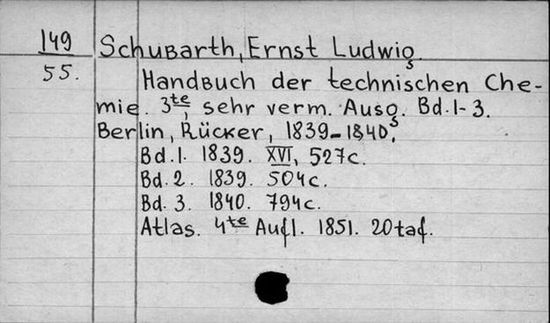 149
55.
Schubarth, Ernst Ludwig
Handbuch der technischen Che-
mie. 3te, sehr verm. Ausg. Bd. 1-3.
Berlin, Rücker, 1839-1840.
Bd. 1. 1839. XVI, 527c.
Bd. 2. 1839. 504c.
Bd. 3. 1840. 794c.
Atlas. 4te Aufl. 1851. 20taf.